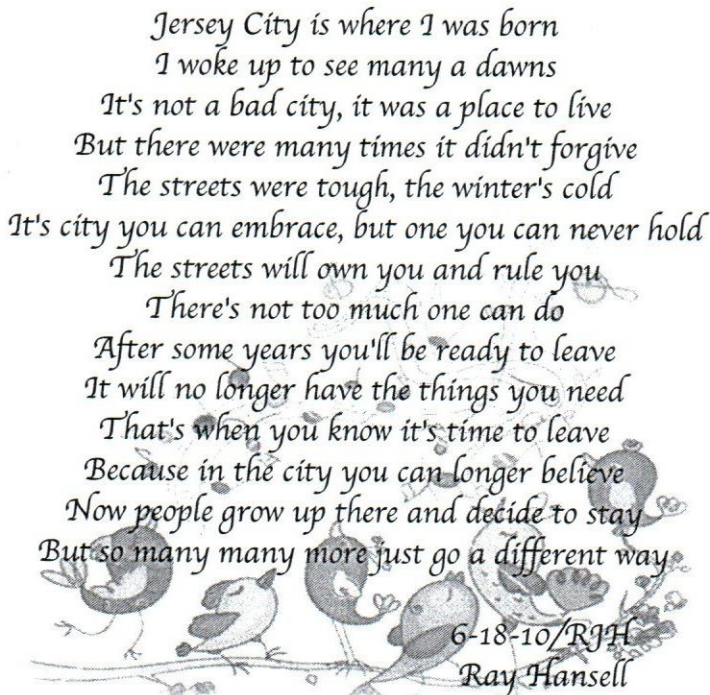 Jersey City is where I was born
I woke up to see many a dawns
It's not a bad city, it was a place to live
But there were many times it didn't forgive
The streets were tough, the winter's cold
It's city you can embrace, but one you can never hold
The streets will own you and rule you
There's not too much one can do
After some years you'll be ready to leave
It will no longer have the things you need
That's when you know it's time to leave
Because in the city you can longer believe
Now people grow up there and decide to stay
But so many many more just go a different way
6-18-10/RJH
Ray Hansell